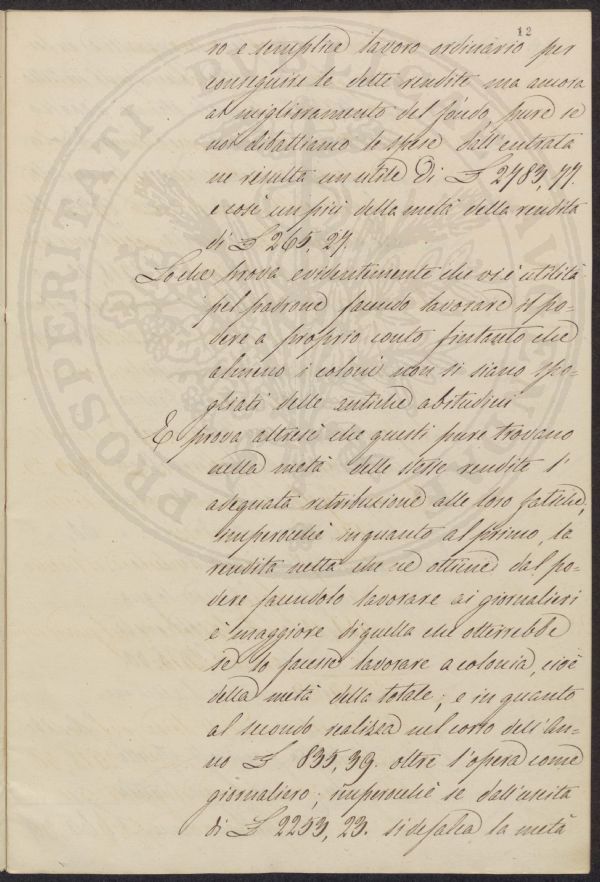 12
ro e semplice lavoro ordinario per
conseguire le dette rendite ma ancora
al miglioramento del fondo, pure se
noi dibattiamo le spese dall'entrata
ne risulta un utile di £ 2783,77.
e così un più della metà della rendita
di £ 265,27.
Loche prova evidentemente che vi è utilità
pel padrone facendo lavorare il po-
dere a proprio conto fintanto che
almeno i coloni non si siano spo-
gliati delle antiche abitudini
E prova altresì che questi pure trovano
nella metà delle stesse rendite l'
adeguata retribuzione alle loro fatiche,
imperocchè inquanto al primo, la
rendita netta che ne ottiene dal po-
dere facendolo lavorare ai giornalieri
è maggiore di quella che otterrebbe
se lo facesse lavorare a colonia, cioè
della metà della totale; e in quanto
al secondo realizza nel corso dell'An-
no £ 835,39. oltre l'opera come
giornaliero; imperocchè se dall'uscita
di £ 2253,23. si defalca la metà
PROSPERITATI PUBLICAE